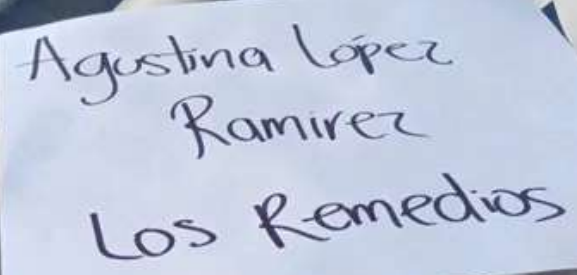 Agustina López
Ramirez
Los Remedios